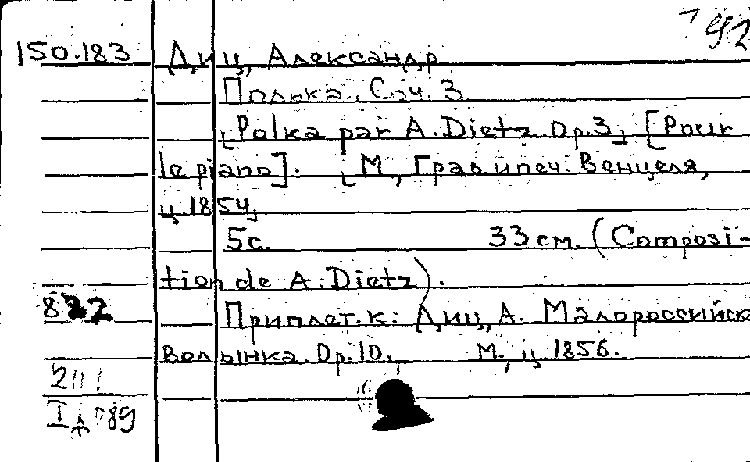 92
150.183 Диц, Александр
Полька. Соч. 3
[Polka par A. Dietz. Op.3] [Pour
le piano]. [М., Грав. и печ. Венцеля,
ц. 1854]
5с. 33 см. (Composi-
tion de A. Dietz).
Приплет. к: Диц, А. Малороссийска
Волынка. Op. 10. М., ц. 1856.